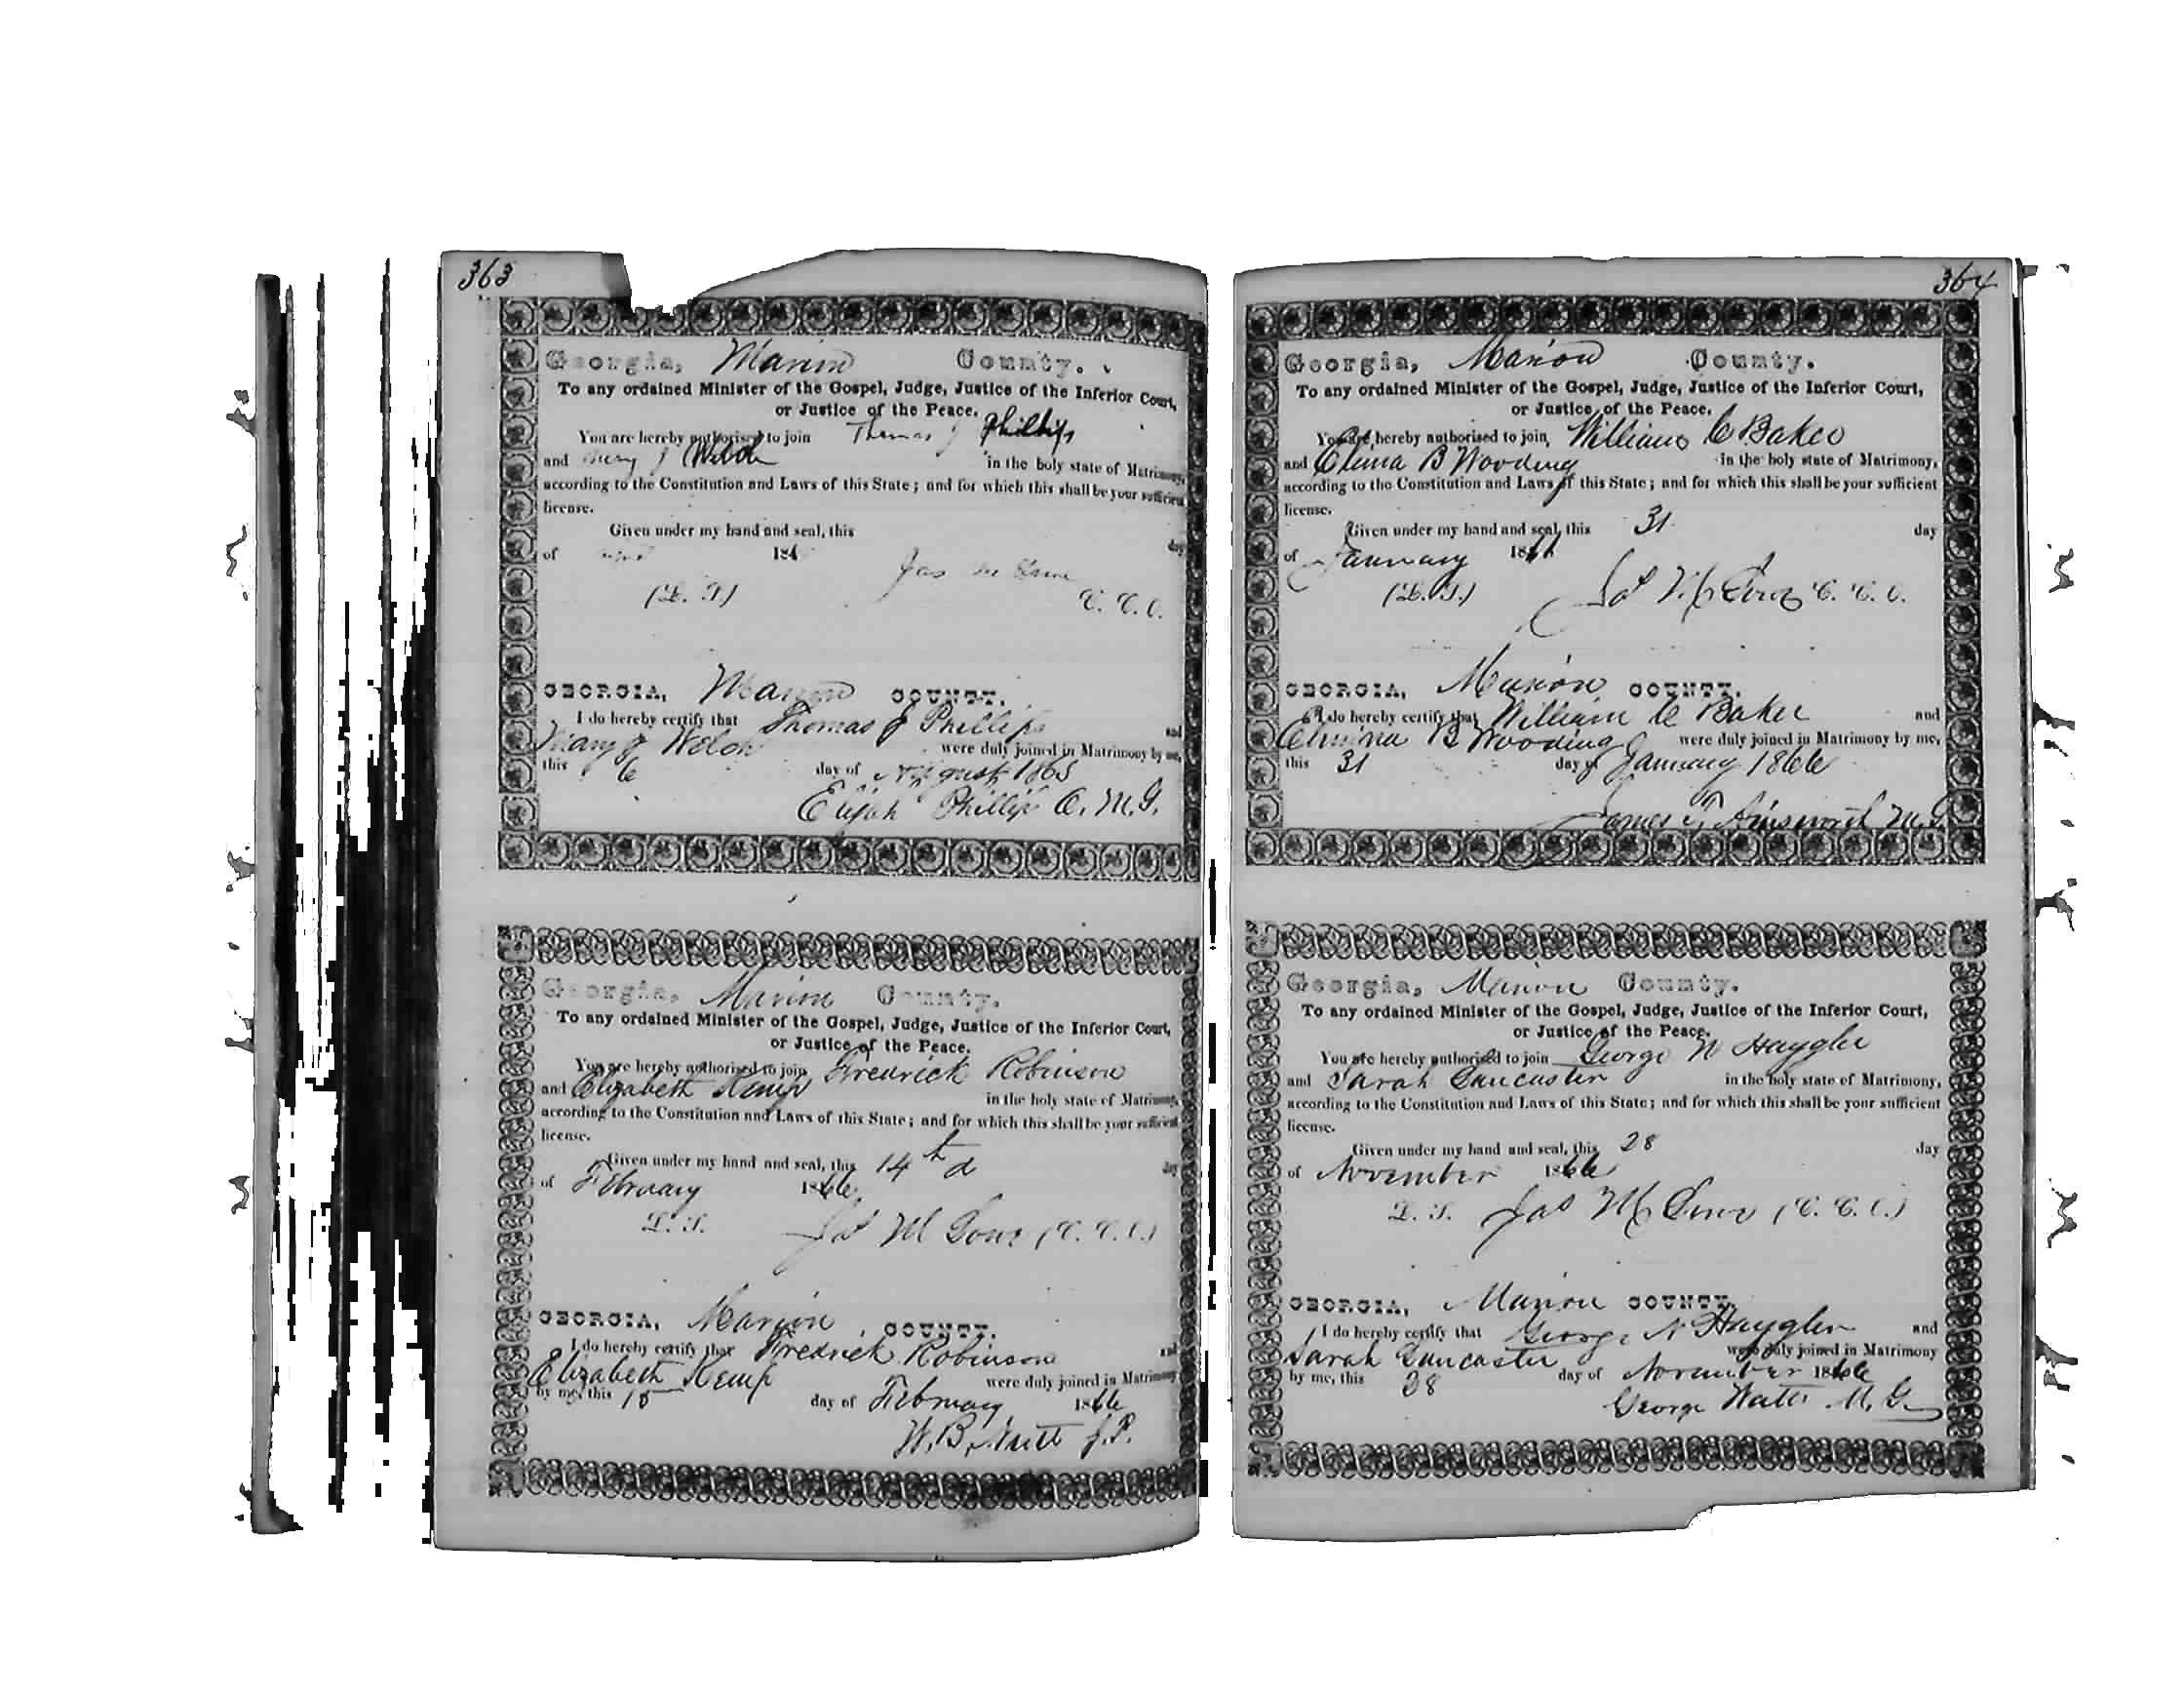 363
Georgia, Marion County.
To any ordained Minister of the Gospel, Judge, Justice of the Inferior Court,
or Justice of the Peace.
You are hereby authorised to join Thomas J Phillips
and Mary J Welch in the holy state of Matrimony,
according to the Constitution and Laws of this State; and for which this shall be your sufficient
license.
Given under my hand and seal, this day
of 186
Jas M
(L. S.) C. C. O.
GEORGIA, Marion COUNTY.
I do hereby certify that Thomas J Phillips and
Mary J Welch were duly joined in Matrimony by me,
this 6 day of August 1865
Elijah Phillips O. M. G.
Georgia, Marion County.
To any ordained Minister of the Gospel, Judge, Justice of the Inferior Court,
or Justice of the Peace.
You are hereby authorised to join Fredrick Robinson
and Elizabeth Kemp in the holy state of Matrimony,
according to the Constitution and Laws of this State; and for which this shall be your sufficient
license.
Given under my hand and seal, this 14th d day
of February 1866
L. S. Jas M Lowe (C. C. O.)
GEORGIA, Marion COUNTY.
I do hereby certify that Fredrick Robinson and
Elizabeth Kemp were duly joined in Matrimony
by me, this 15 day of February 1866
W. B. J. P.
364
Georgia, Marion County.
To any ordained Minister of the Gospel, Judge, Justice of the Inferior Court,
or Justice of the Peace.
You are hereby authorised to join William C Baker
and B Wooding in the holy state of Matrimony,
according to the Constitution and Laws of this State; and for which this shall be your sufficient
license.
Given under my hand and seal, this 31 day
of January 1866
(L. S.) Jas M Lowe C. C. O.
GEORGIA, Marion COUNTY.
I do hereby certify that William C Baker and
B Wooding were duly joined in Matrimony by me,
this 31 day of January 1866
James T. Ainsworth M. G.
Georgia, Marion County.
To any ordained Minister of the Gospel, Judge, Justice of the Inferior Court,
or Justice of the Peace.
You are hereby authorised to join George N Haygler
and Sarah Lancaster in the holy state of Matrimony,
according to the Constitution and Laws of this State; and for which this shall be your sufficient
license.
Given under my hand and seal, this 28 day
of November 1866
L. S. Jas M Lowe (C. C. O.)
GEORGIA, Marion COUNTY.
I do hereby certify that George N Haygler and
Sarah Lancaster were duly joined in Matrimony
by me, this 28 day of November 1866
George Watts M. G.